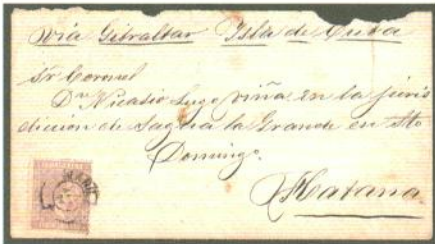 Via Gibraltar Isla de Cuba
Sr Coronel
Dn Nicasio Lugo Viña en la juris
diccion de Sagua la Grande en Sto
Domingo.
Habana